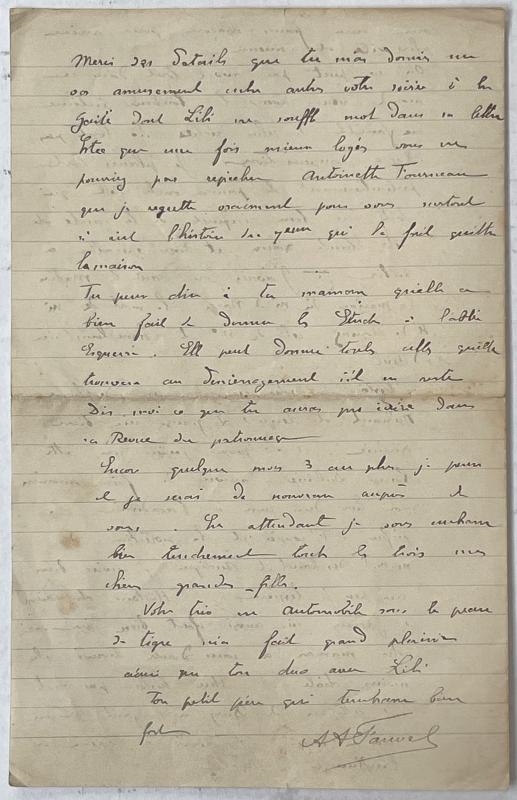 Merci des détails que tu m'as donnés sur
vos amusements entre autres votre soirée à la
Gaité dont Lili ne souffle mot dans sa lettre
Est ce que une fois mieux logés vous ne
pourriez pas reprendre Antoinette Fourneau
que je regrette vraiment pour vous surtout
si c'est l'histoire des yeux qui l'a fait quitter
la maison
Tu peux dire à ta maman qu'elle a
bien fait de donner les Etudes à l'abbé
Esquerre. Elle peut donner toutes celles qu'elle
trouvera au déménagement s'il en reste
Dis moi ce que tu auras pu écrire dans
la Revue du patronage
Encore quelques mois 3 au plus je pense
et je serai de nouveau auprès de
vous. En attendant je vous embrasse
bien tendrement toutes les trois mes
chères grandes filles.
Votre trio en automobile sous la peau
de tigre m'a fait grand plaisir
ainsi que ton duo avec Lili
Ton petit père qui t'embrasse bien
fort
A A Fauvel